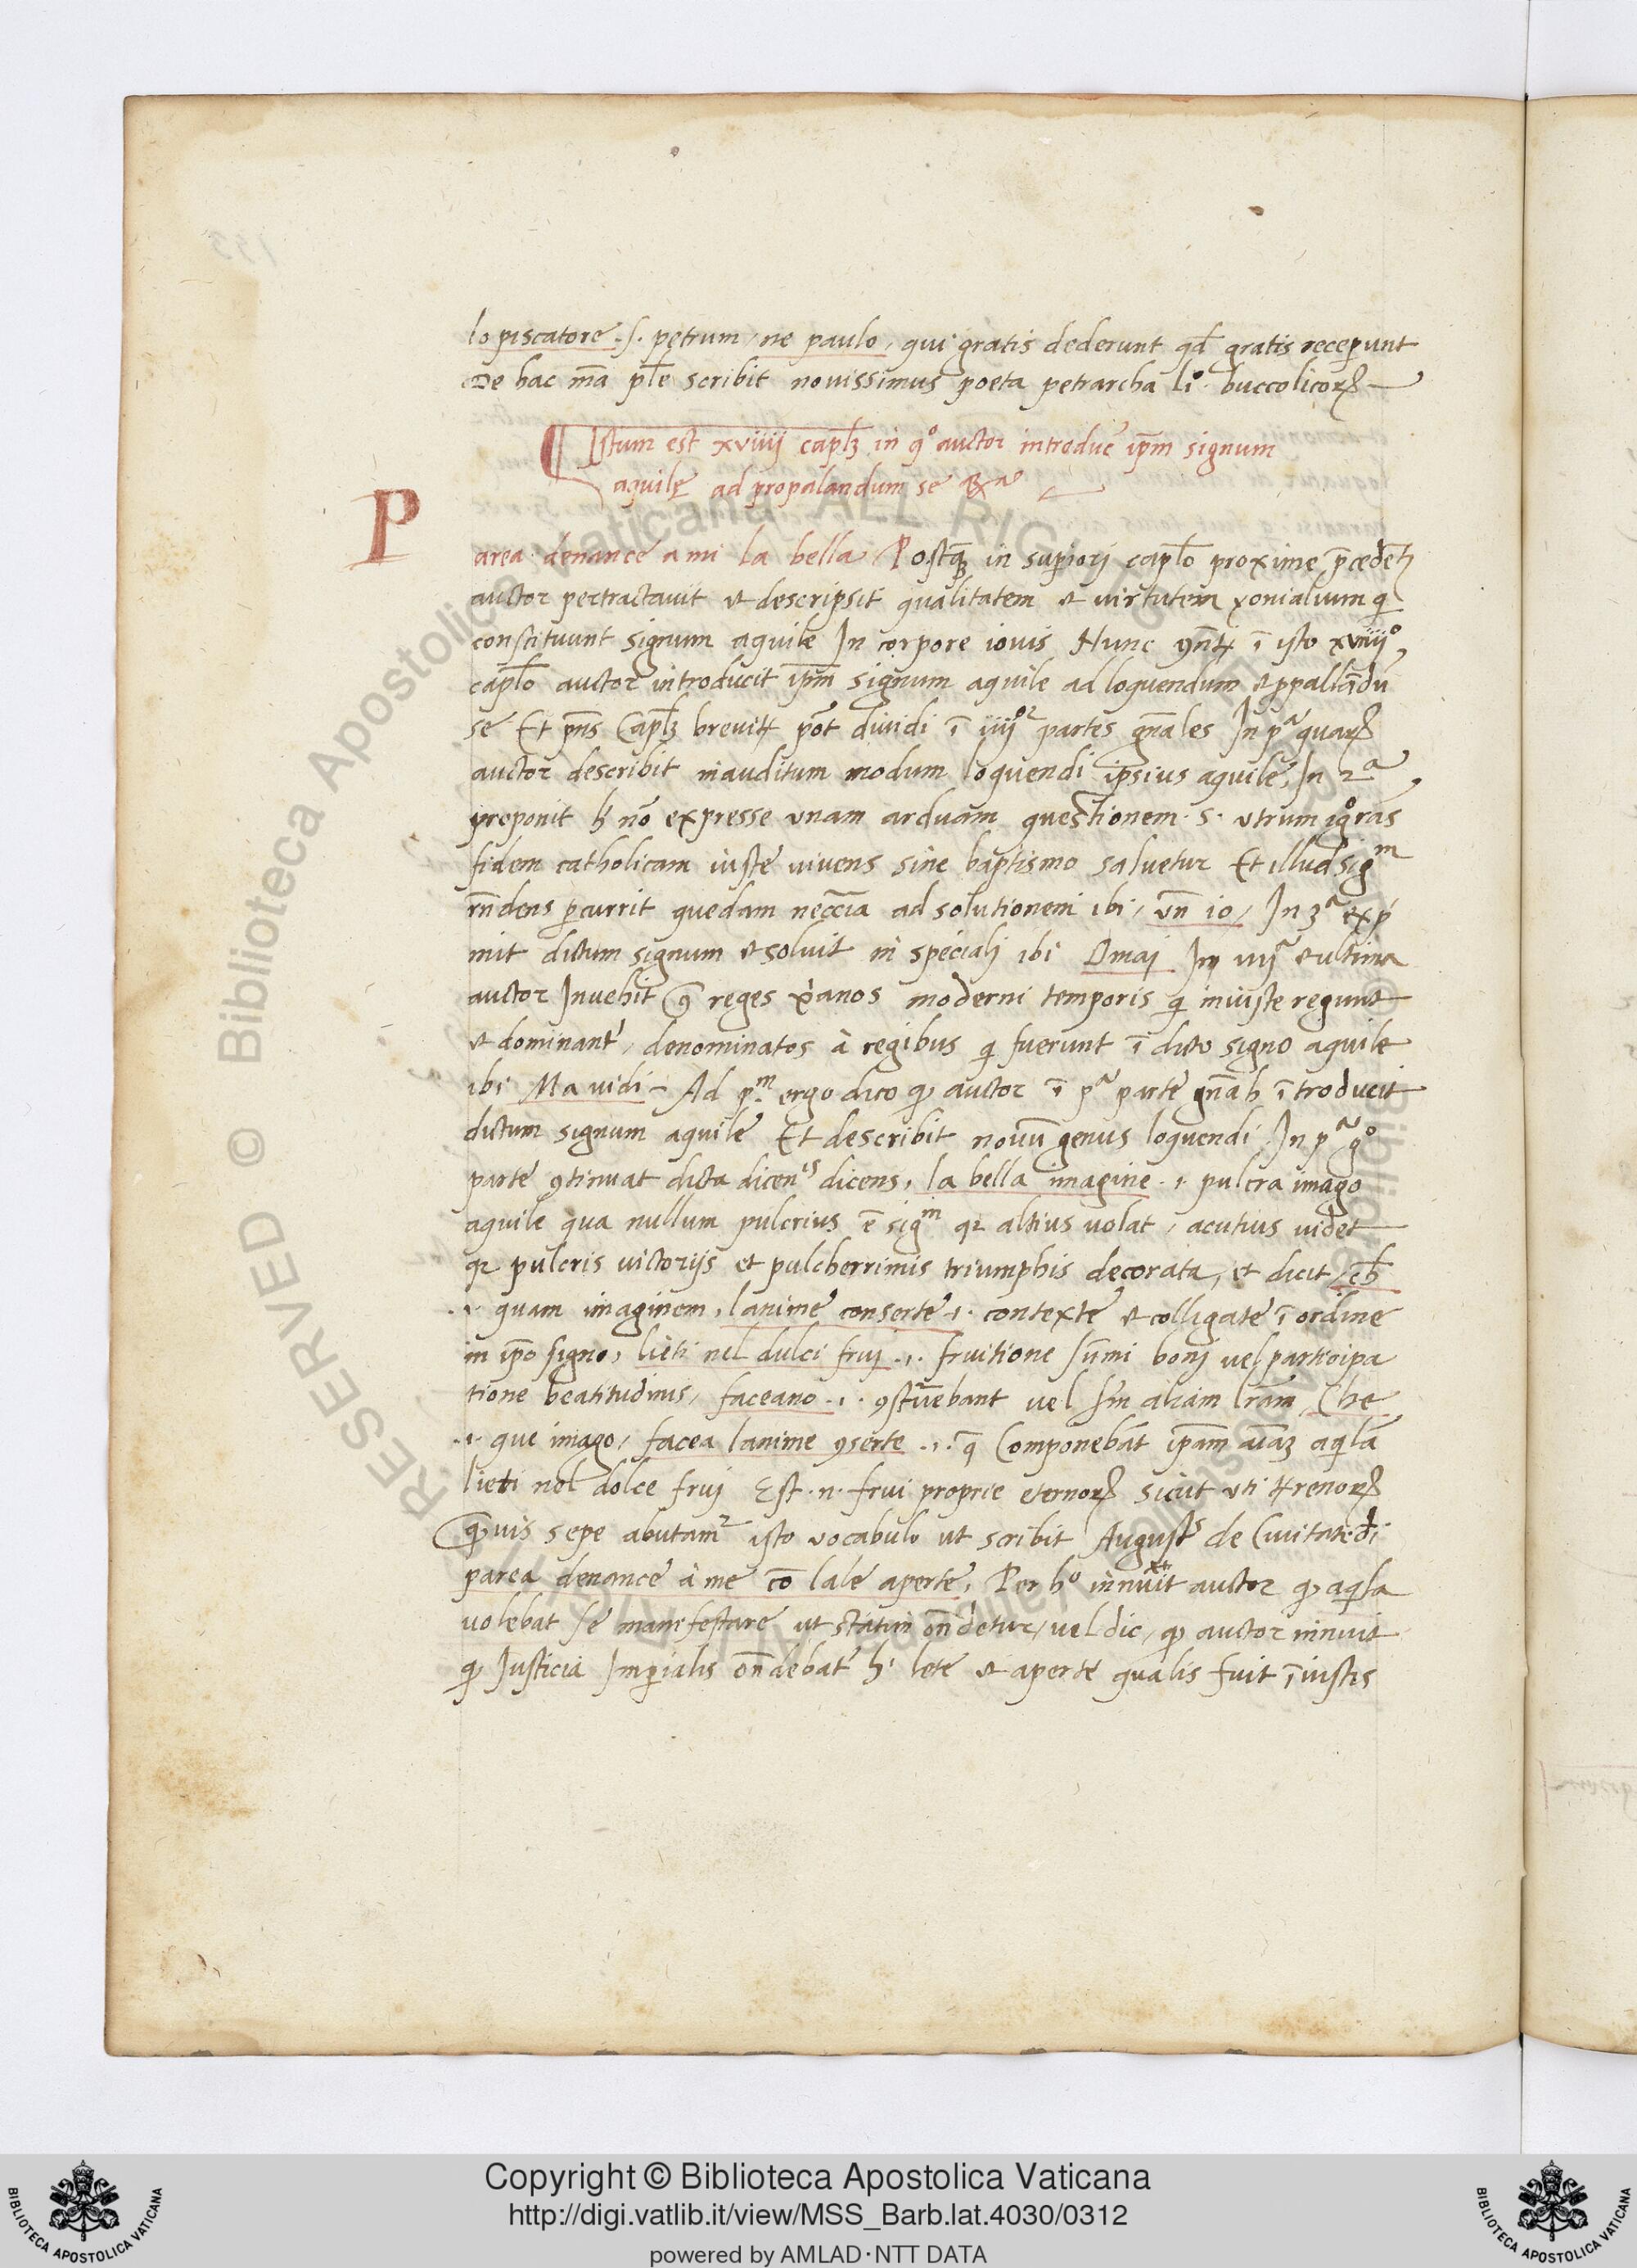 lo piscatore .s. petrum, ne paulo, qui gratis dederunt qd̄ gratis receperunt
De hac mā plē scribit novissimus poeta petrarcha li° buccolicorꝝ
¶ Istum est xviiij caplꝫ in q° auctor introduc̄ ip̄m signum
aquile ad propalandum se &cᵃ
P
area denance a mi la bella Postq̄ꝫ in superiori caplo proxime p̄cedētj
auctor pertractavit et descripsit qualitatem et virtutem qui
constituunt signum aquile In corpore iovis Nunc ꝯnr̄ ī isto xviiij°
caplo auctor introducit ip̄m signum aquile ad loquendum et ꝓpallādū
se Et p̄ns Caplꝫ brevitr pōt dividi ī iiijᵒʳ partes gn̄ales In pᵃ quarꝝ
auctor describit inauditum modum loquendi ipsius aquile, In 2ᵃ
preponit h̄ nō expresse unam arduam questionem .s. utrum igᵒrās
fidem catholicam iuste vivens sine baptismo salvetur Et illud sigᵐ
rn̄dens ꝑcurrit quedam necc̄ia ad solutionem ibi, ūn io, In 3ᵃ exp̄
mit dictum signum et solvit in speciali ibi Omaj In iiijᵃ et ultima
auctor Invehit ꝯ̄ reges xp̄ianos moderni temporis qi iniuste regunt
et dominant̄, denominatos à regibus qi fuerunt ī dicto signo aquile
ibi Ma vidi - Ad pᵐ ergo dico ꝙ auctor ī pᵃ parte gn̄ali ītroducit
dictum signum aquile Et describit novū genus loquendi. In pᵃ g°
parte ꝯtinuat dicta dicenˢ dicens, la bella imagine .i. pulcra imago
aquile qua nullum pulcrius ē sigᵐ qr altius volat, acutius videt
qr pulcris victorijs et pulcherrimis triumphis decorata, et dicit,
.i. quam imaginem, lanime conserte .i. contexte et colligate ī ordine
in ip̄o signo, lieti nel dulci fruj .i. fruitione sūmi bonj vel participa
tione beatitudinis, faceano .i. ꝯstūebant vel s̄m aliam lr̄am, Che
.i. que imago, facea lanime ꝯserte .i. q̄ Componebāt ip̄am aīaꝫ aqlā
lieti nel dolce fruj Est .n. frui proprie eternorꝝ sicut uti trenorꝝ
q̄vis sepe abutam² isto vocabulo ut scribit Augustˢ de Civitate dī
parea denance à me cō lale aperte, Per h° innuit auctor ꝙ aqla
volebat se manifestare ut statim on̄detur, vel dic, ꝙ auctor innuit
ꝙ Justicia Imperialis on̄debat̄ hⁱ lete et aperte qualis fuit ī iustis
Copyright © Biblioteca Apostolica Vaticana
http://digi.vatlib.it/view/MSS_Barb.lat.4030/0312
powered by AMLAD·NTT DATA
BIBLIOTECA APOSTOLICA VATICANA
BIBLIOTECA APOSTOLICA VATICANA